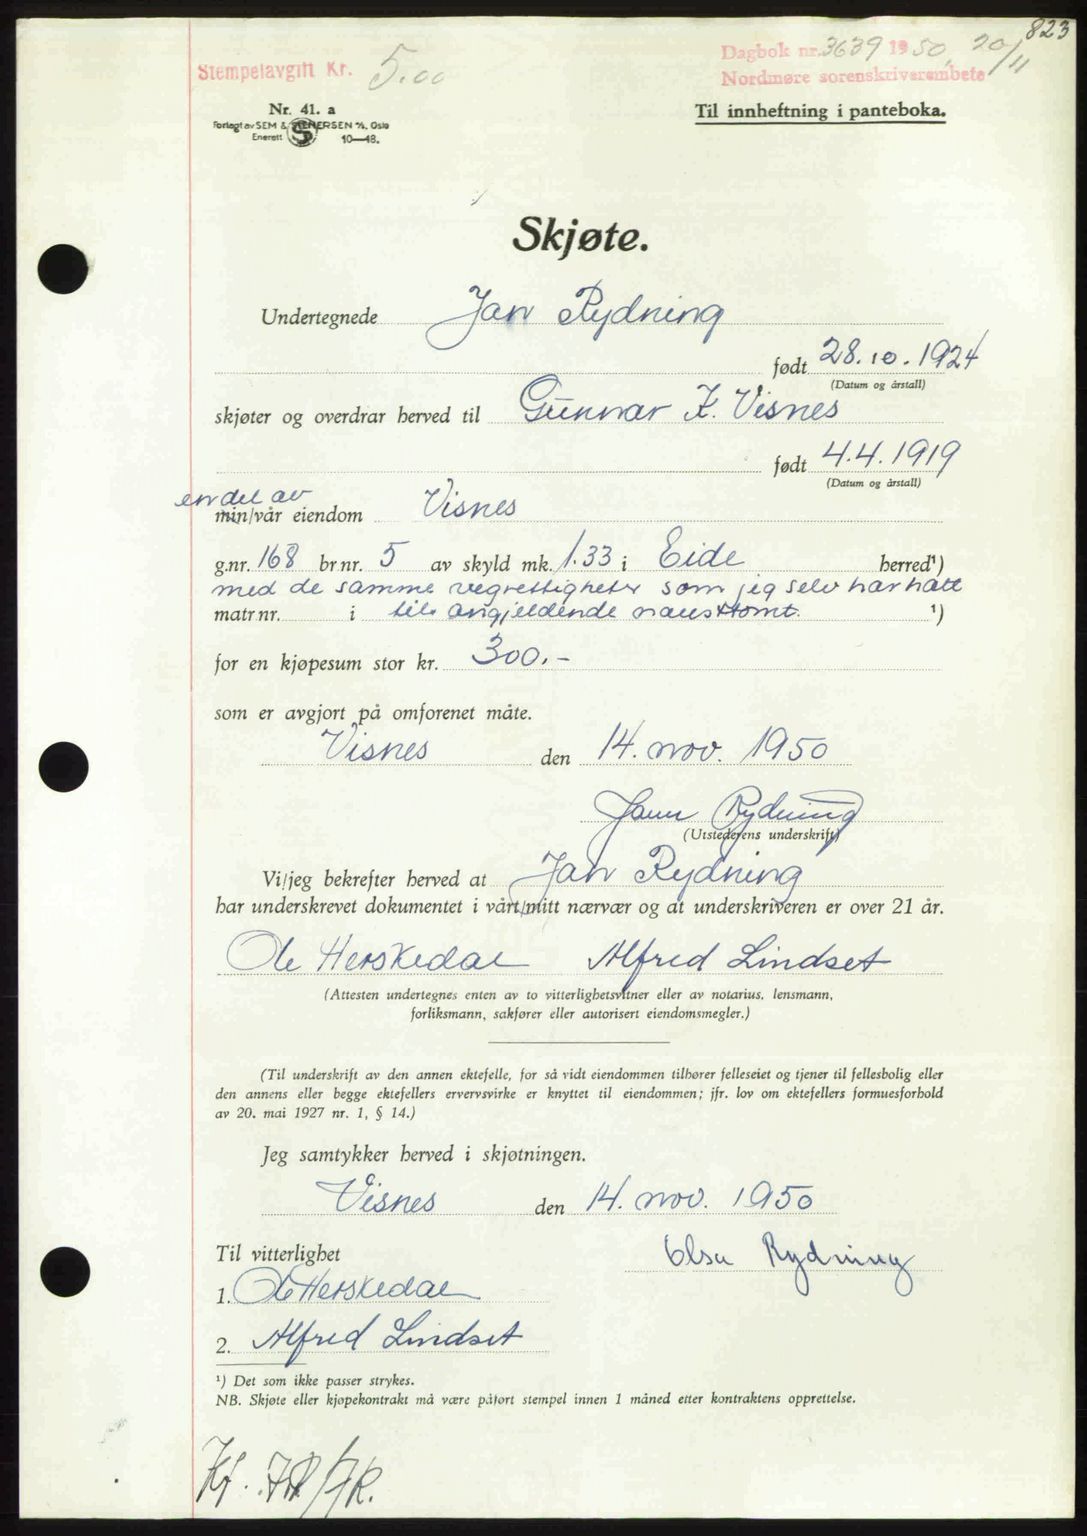 823
Stempelavgift Kr. 5.00
Dagbok nr. 3639 1950, 20/11
Nordmøre sorenskriverembete
Nr. 41. a
Forlagt av SEM & STENERSEN A/S, Oslo
Enerett 10—48.
Til innheftning i panteboka.
Skjøte.
Undertegnede Jan Rydning
født 28.10.1924
(Datum og årstall)
skjøter og overdrar herved til Gunnar K. Visnes
født 4.4.1919
(Datum og årstall)
en del av
min/vår eiendom Visnes
g.nr. 168 br.nr. 5 av skyld mk. 1.33 i Eide herred¹)
med de samme vegrettigheter som jeg selv har hatt
matr.nr. i til angjeldende nausttomt. ¹)
for en kjøpesum stor kr. 300.-
som er avgjort på omforenet måte.
Visnes den 14. nov. 1950
Jann Rydning
(Utstederens underskrift)
Vi/jeg bekrefter herved at Jan Rydning
har underskrevet dokumentet i vårt/mitt nærvær og at underskriveren er over 21 år.
Ole Herskedal Alfred Lindset
(Attesten undertegnes enten av to vitterlighetsvitner eller av notarius, lensmann,
forliksmann, sakfører eller autorisert eiendomsmegler.)
(Til underskrift av den annen ektefelle, for så vidt eiendommen tilhører felleseiet og tjener til fellesbolig eller
den annens eller begge ektefellers ervervsvirke er knyttet til eiendommen; jfr. lov om ektefellers formuesforhold
av 20. mai 1927 nr. 1, § 14.)
Jeg samtykker herved i skjøtningen.
Visnes den 14. nov. 1950
Til vitterlighet Elsa Rydning
1. Ole Herskedal
2. Alfred Lindset
¹) Det som ikke passer strykes.
NB. Skjøte eller kjøpekontrakt må være påført stempel innen 1 måned etter kontraktens opprettelse.